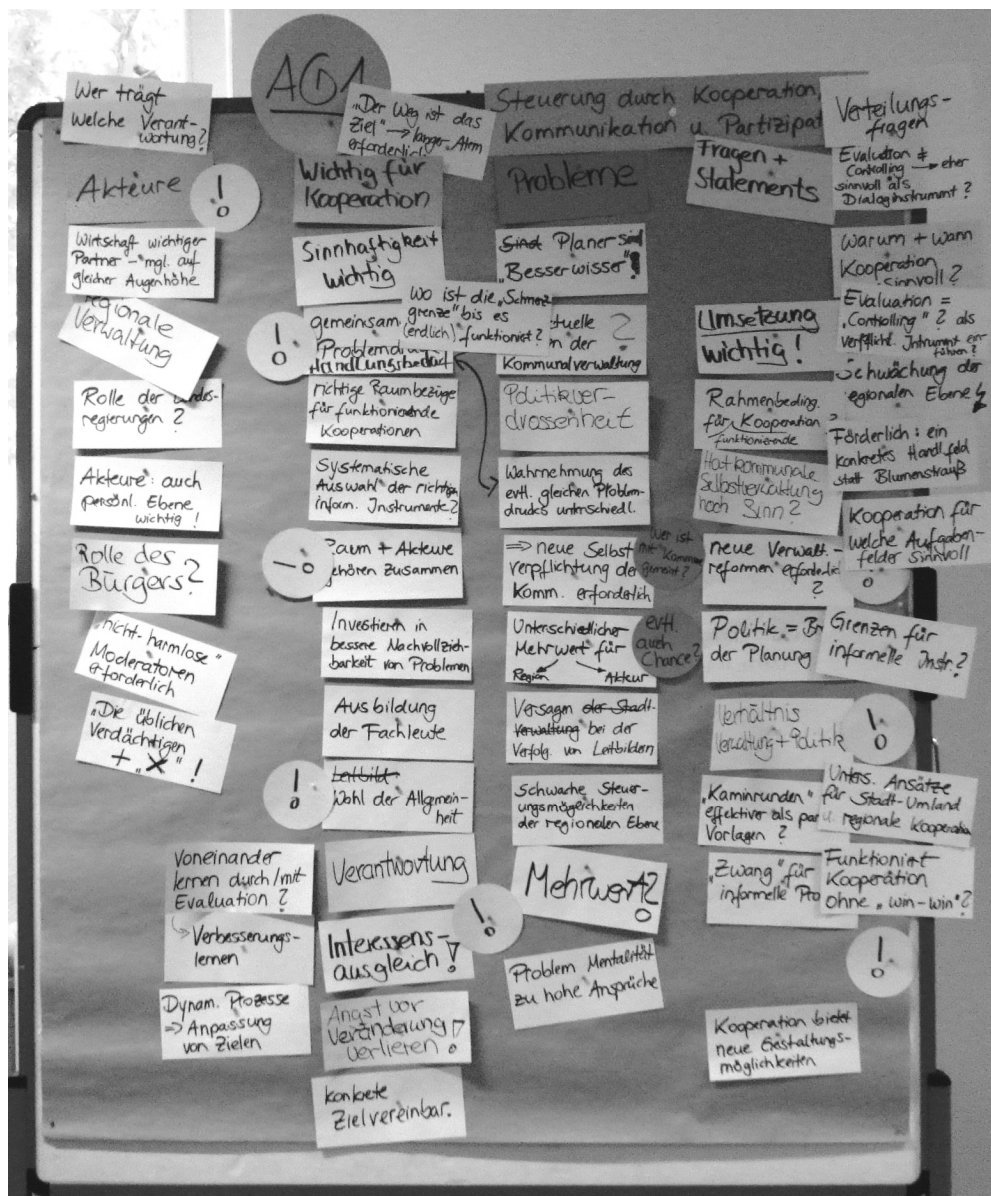 AG1
Steuerung durch Kooperation,
Kommunikation u. Partizipat
Wer trägt
welche Verant-
wortung?
"Der Weg ist das
Ziel" → langer Atem
erforderlich!
Akteure
!
Wirtschaft wichtiger
Partner – mgl. auf
gleicher Augenhöhe
regionale
Verwaltung
Rolle der Landes-
regierungen?
Akteure: auch
persönl. Ebene
wichtig!
Rolle des
Bürgers?
"nicht-harmlose"
Moderatoren
erforderlich
"Die üblichen
Verdächtigen
+ "X"!
Voneinander
lernen durch/mit
Evaluation?
→ Verbesserungs-
lernen
Dynam. Prozesse
⇒ Anpassung
von Zielen
Wichtig für
Kooperation
Sinnhaftigkeit
wichtig
wo ist die "Schmerz
grenze" bis es
(endlich) funktioniert?
!
gemeinsam
Problemdr
Handlungsbedarf
richtige Raumbezüge
für funktionierende
Kooperationen
Systematische
Auswahl der richtigen
inform. Instrumente?
!
Raum + Akteure
gehören zusammen
Investieren in
bessere Nachvollzieh-
barkeit von Problemen
Ausbildung
der Fachleute
!
Leitbild
Wohl der Allgemein-
heit
Verantwortung
!
Interessens-
ausgleich!
Angst vor
Veränderung
verlieren!
konkrete
Zielvereinbar.
Probleme
Sind Planer sind
"Besserwisser"!
tuelle ?
n der
Kommunalverwaltung
Politikver-
drossenheit
Wahrnehmung des
evtl. gleichen Problem-
drucks unterschiedl.
⇒ neue Selbst
verpflichtung der
Komm. erforderlich
Wer ist
mit "Komm
gemeint?
Unterschiedlicher
Mehrwert für
Region Akteur
evtl.
auch
Chance?
Versagen der Stadt-
verwaltung bei der
Verfolg. von Leitbildern
Schwache Steuer-
ungsmöglichkeiten
der regionalen Ebene
Mehrwert?
Problem Mentalität
zu hohe Ansprüche
Fragen +
Statements
Umsetzung
wichtig!
Rahmenbeding.
für Kooperation
funktionierende
Hat kommunale
Selbstverwaltung
noch Sinn?
neue Verwalt.-
reformen erforderlich
?
Politik = Br
der Planung
Verhältnis
Verwaltung + Politik
!
"Kaminrunden"
effektiver als pa
Vorlagen?
"Zwang" für
informelle Pro
!
Kooperation bietet
neue Gestaltungs-
möglichkeiten
Verteilungs-
fragen
Evaluation ≠
Controlling → eher
sinnvoll als
Dialoginstrument?
Warum + wann
Kooperation
sinnvoll?
Evaluation =
"Controlling"? als
verpflicht. Intrument ein
führen?
Schwächung der
regionalen Ebene
Förderlich: ein
konkretes Handl.feld
statt Blumenstrauß
Kooperation für
welche Aufgaben-
felder sinnvoll
Grenzen für
informelle Instr.?
Unters. Ansätze
für Stadt-Umland
u. regionale Kooperation
Funktioniert
Kooperation
ohne "win-win"?